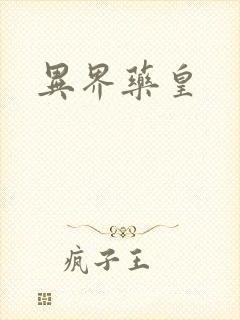 異界藥皇
瘋子王